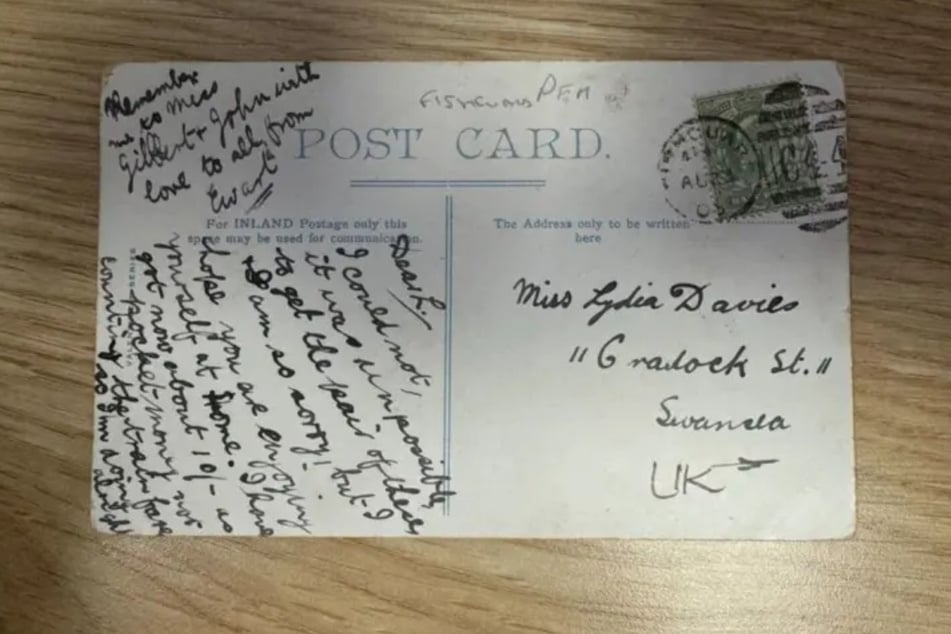 Remember
me to Miss
Gilbert + John with
love to all from
Ewart
FISHGUARD PEM
POST CARD.
For INLAND Postage only this
space may be used for communication.
The Address only to be written
here
Dear L.
I could not,
it was unpossible,
to get the pair of these
I am so sorry! but I
hope you are enjoying
yourself at home. I have
got now about 10/- as
pocket-money not
counting the train fare
so I'm doing
alright
Miss Lydia Davies
"Cradock St."
Swansea
UK